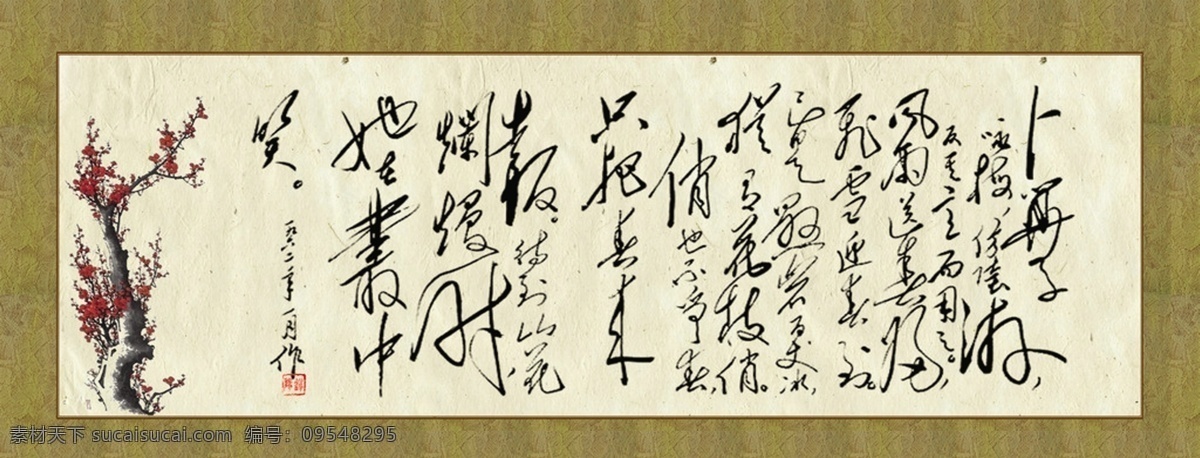 卜算子
咏梅，仿陸游，
反其意而用之。
風雨送春歸，
飛雪迎春到。
已是懸岩百丈冰，
猶有花枝俏。
俏也不争春，
只把春来
報。待到山花
爛漫时，
她在叢中
笑。
一九六二年一月作
素材天下 sucaisucai.com 编号：09548295